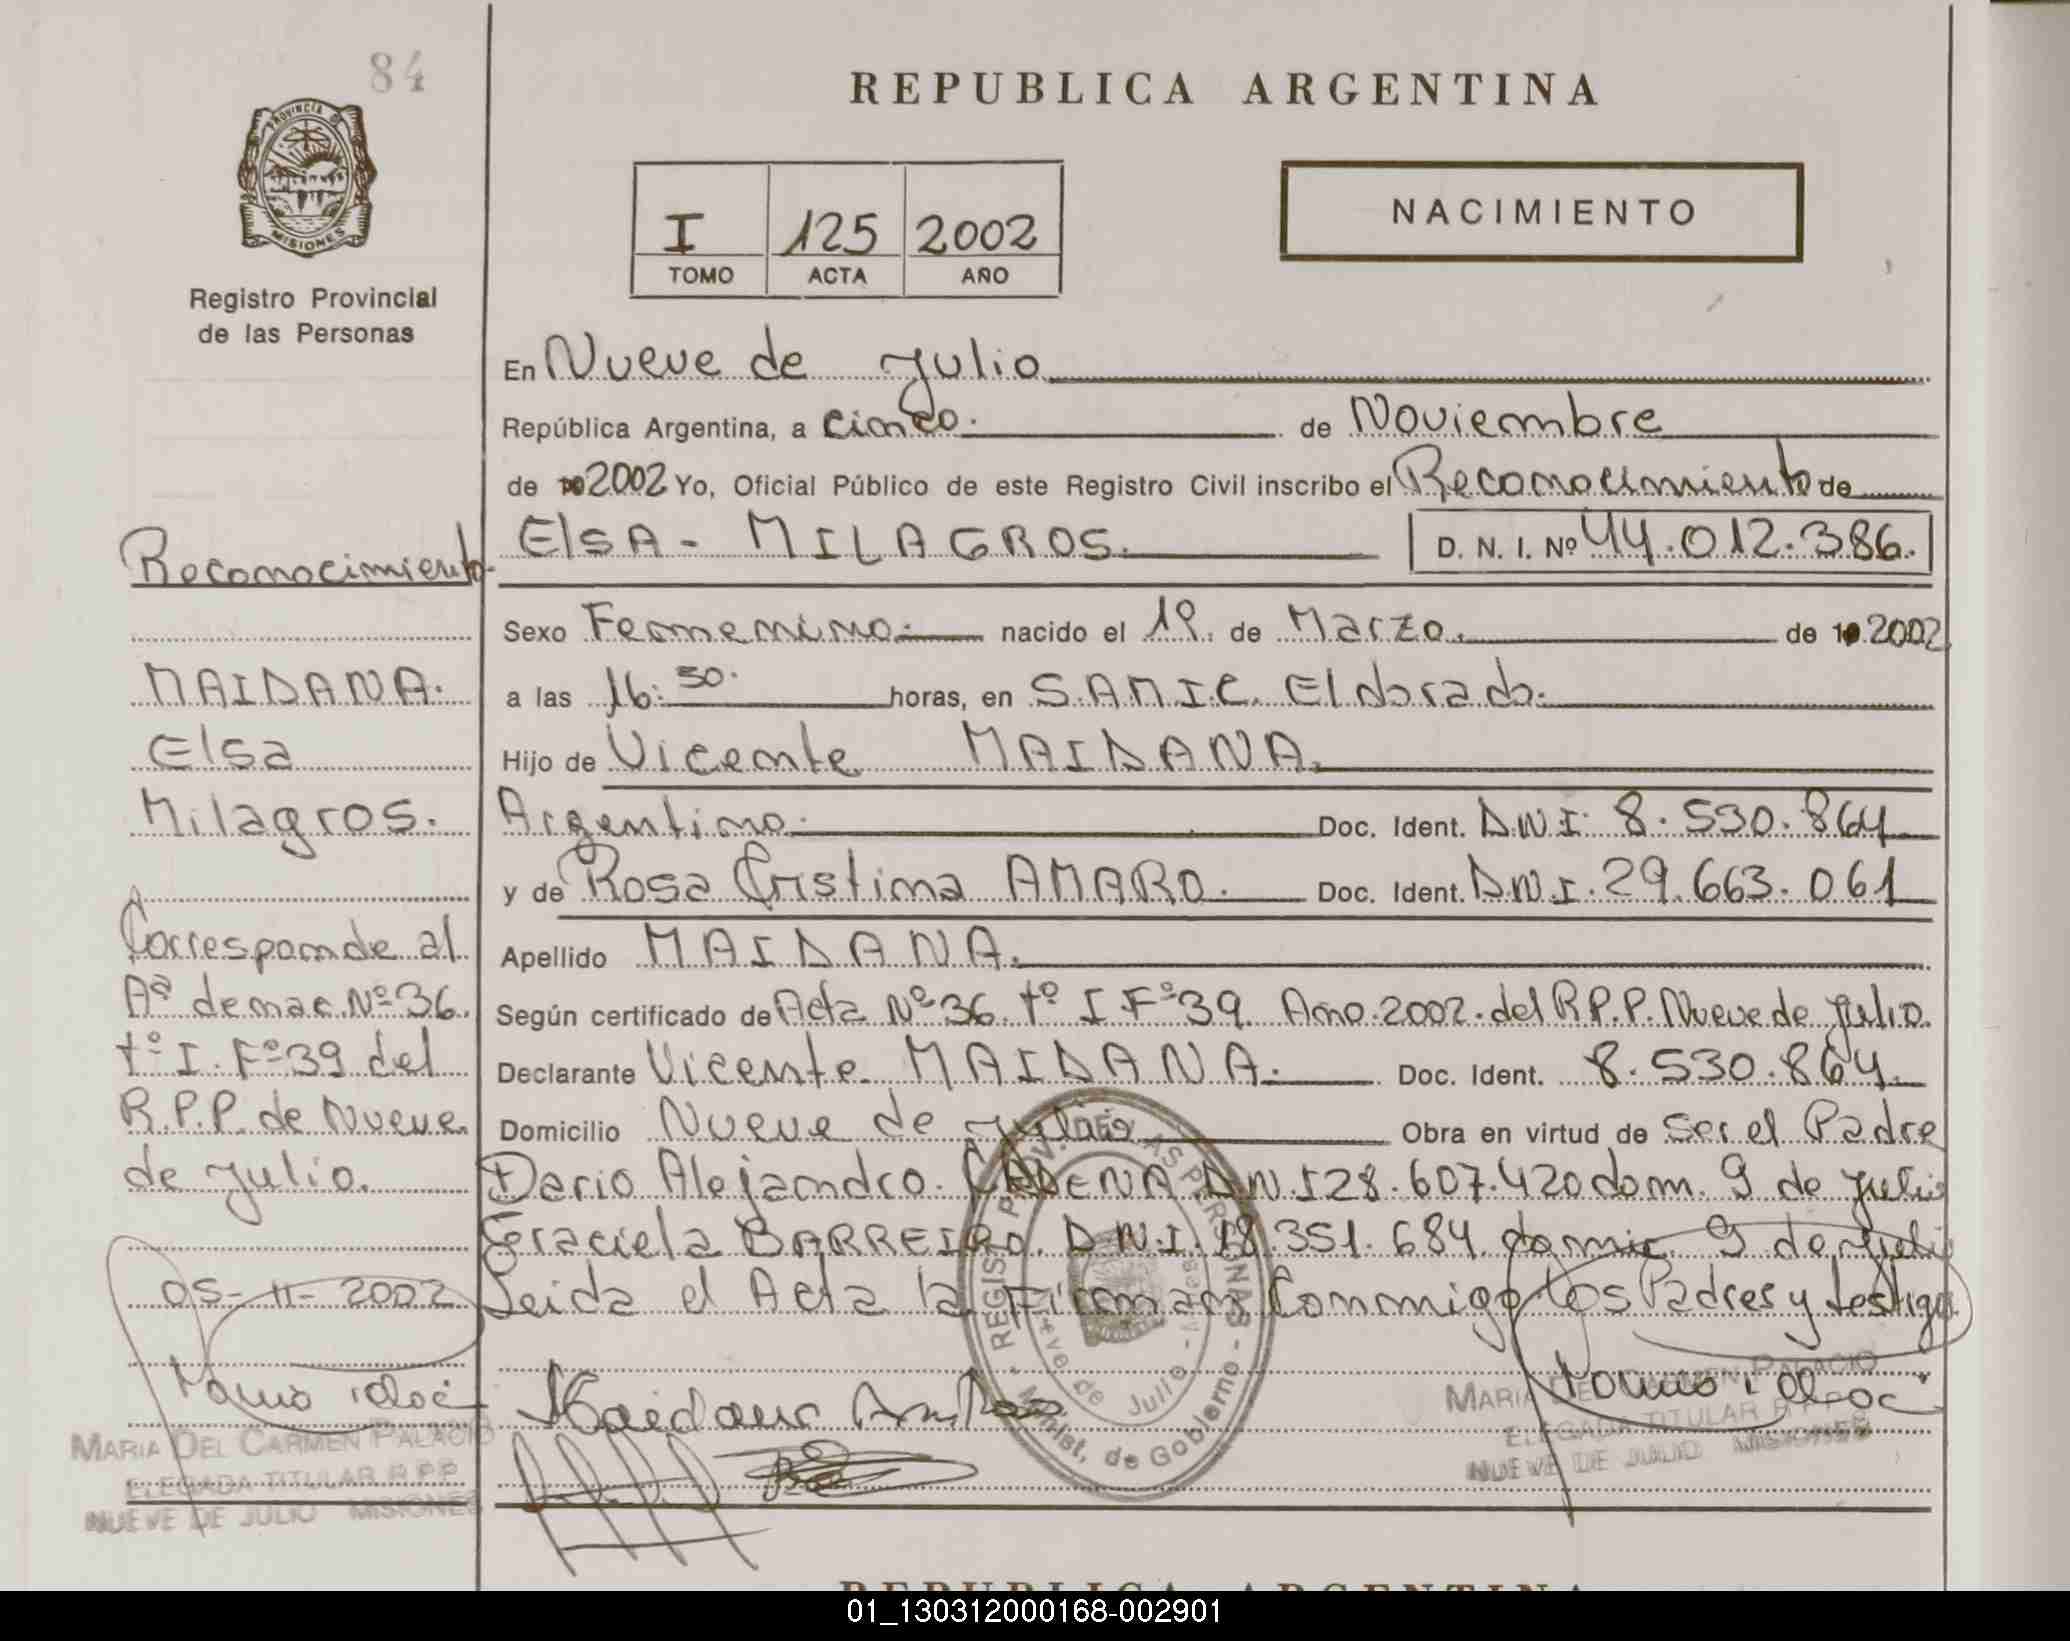 84
REPUBLICA ARGENTINA
PROVINCIA DE
MISIONES
Registro Provincial
de las Personas
I 125 2002
TOMO ACTA AÑO
NACIMIENTO
En Nueve de Julio
República Argentina, a cinco. de Noviembre
de 2002 Yo, Oficial Público de este Registro Civil inscribo el Reconocimiento de
ElsA - MILAGROS. D. N. I. Nº 44.012.386.
Sexo Femenino. nacido el 1º. de Marzo. de 2002
a las 16:30. horas, en S.A.M.I.C. Eldorado.
Hijo de Vicente MAIDANA.
Argentino. Doc. Ident. D.N.I. 8.530.864
y de Rosa Cristina AMARO. Doc. Ident. D.N.I. 29.663.061
Apellido MAIDANA.
Según certificado de Acta Nº 36 tº I Fº 39. Año 2002 del R.P.P. Nueve de Julio.
Declarante Vicente MAIDANA. Doc. Ident. 8.530.864.
Domicilio Nueve de Julio Obra en virtud de Ser el Padre
Dario Alejandro. CADENA D.N.I 28.607.420 dom. 9 de Julio
Graciela BARREIRO. D.N.I. 18.351.684 domic. 9 de Juli
Leida el Acta la Firman Conmigo los Padres y testigo
Reconocimiento-
MAIDANA.
Elsa
Milagros.
Corresponde al
Aª de nac. Nº 36.
tº I. Fº 39 del
R.P.P. de Nueve
de Julio.
05-11-2002
MARIA DEL CARMEN PALACIO
DELEGADA TITULAR R.P.P.
NUEVE DE JULIO MISIONES
REGIST. PROV. DE LAS PERSONAS
Minist. de Gobierno
Nueve de Julio - Mnes
MARIA DEL CARMEN PALACIO
DELEGADA TITULAR R.P.P.
NUEVE DE JULIO MISIONES
REPUBLICA ARGENTINA
01_130312000168-002901